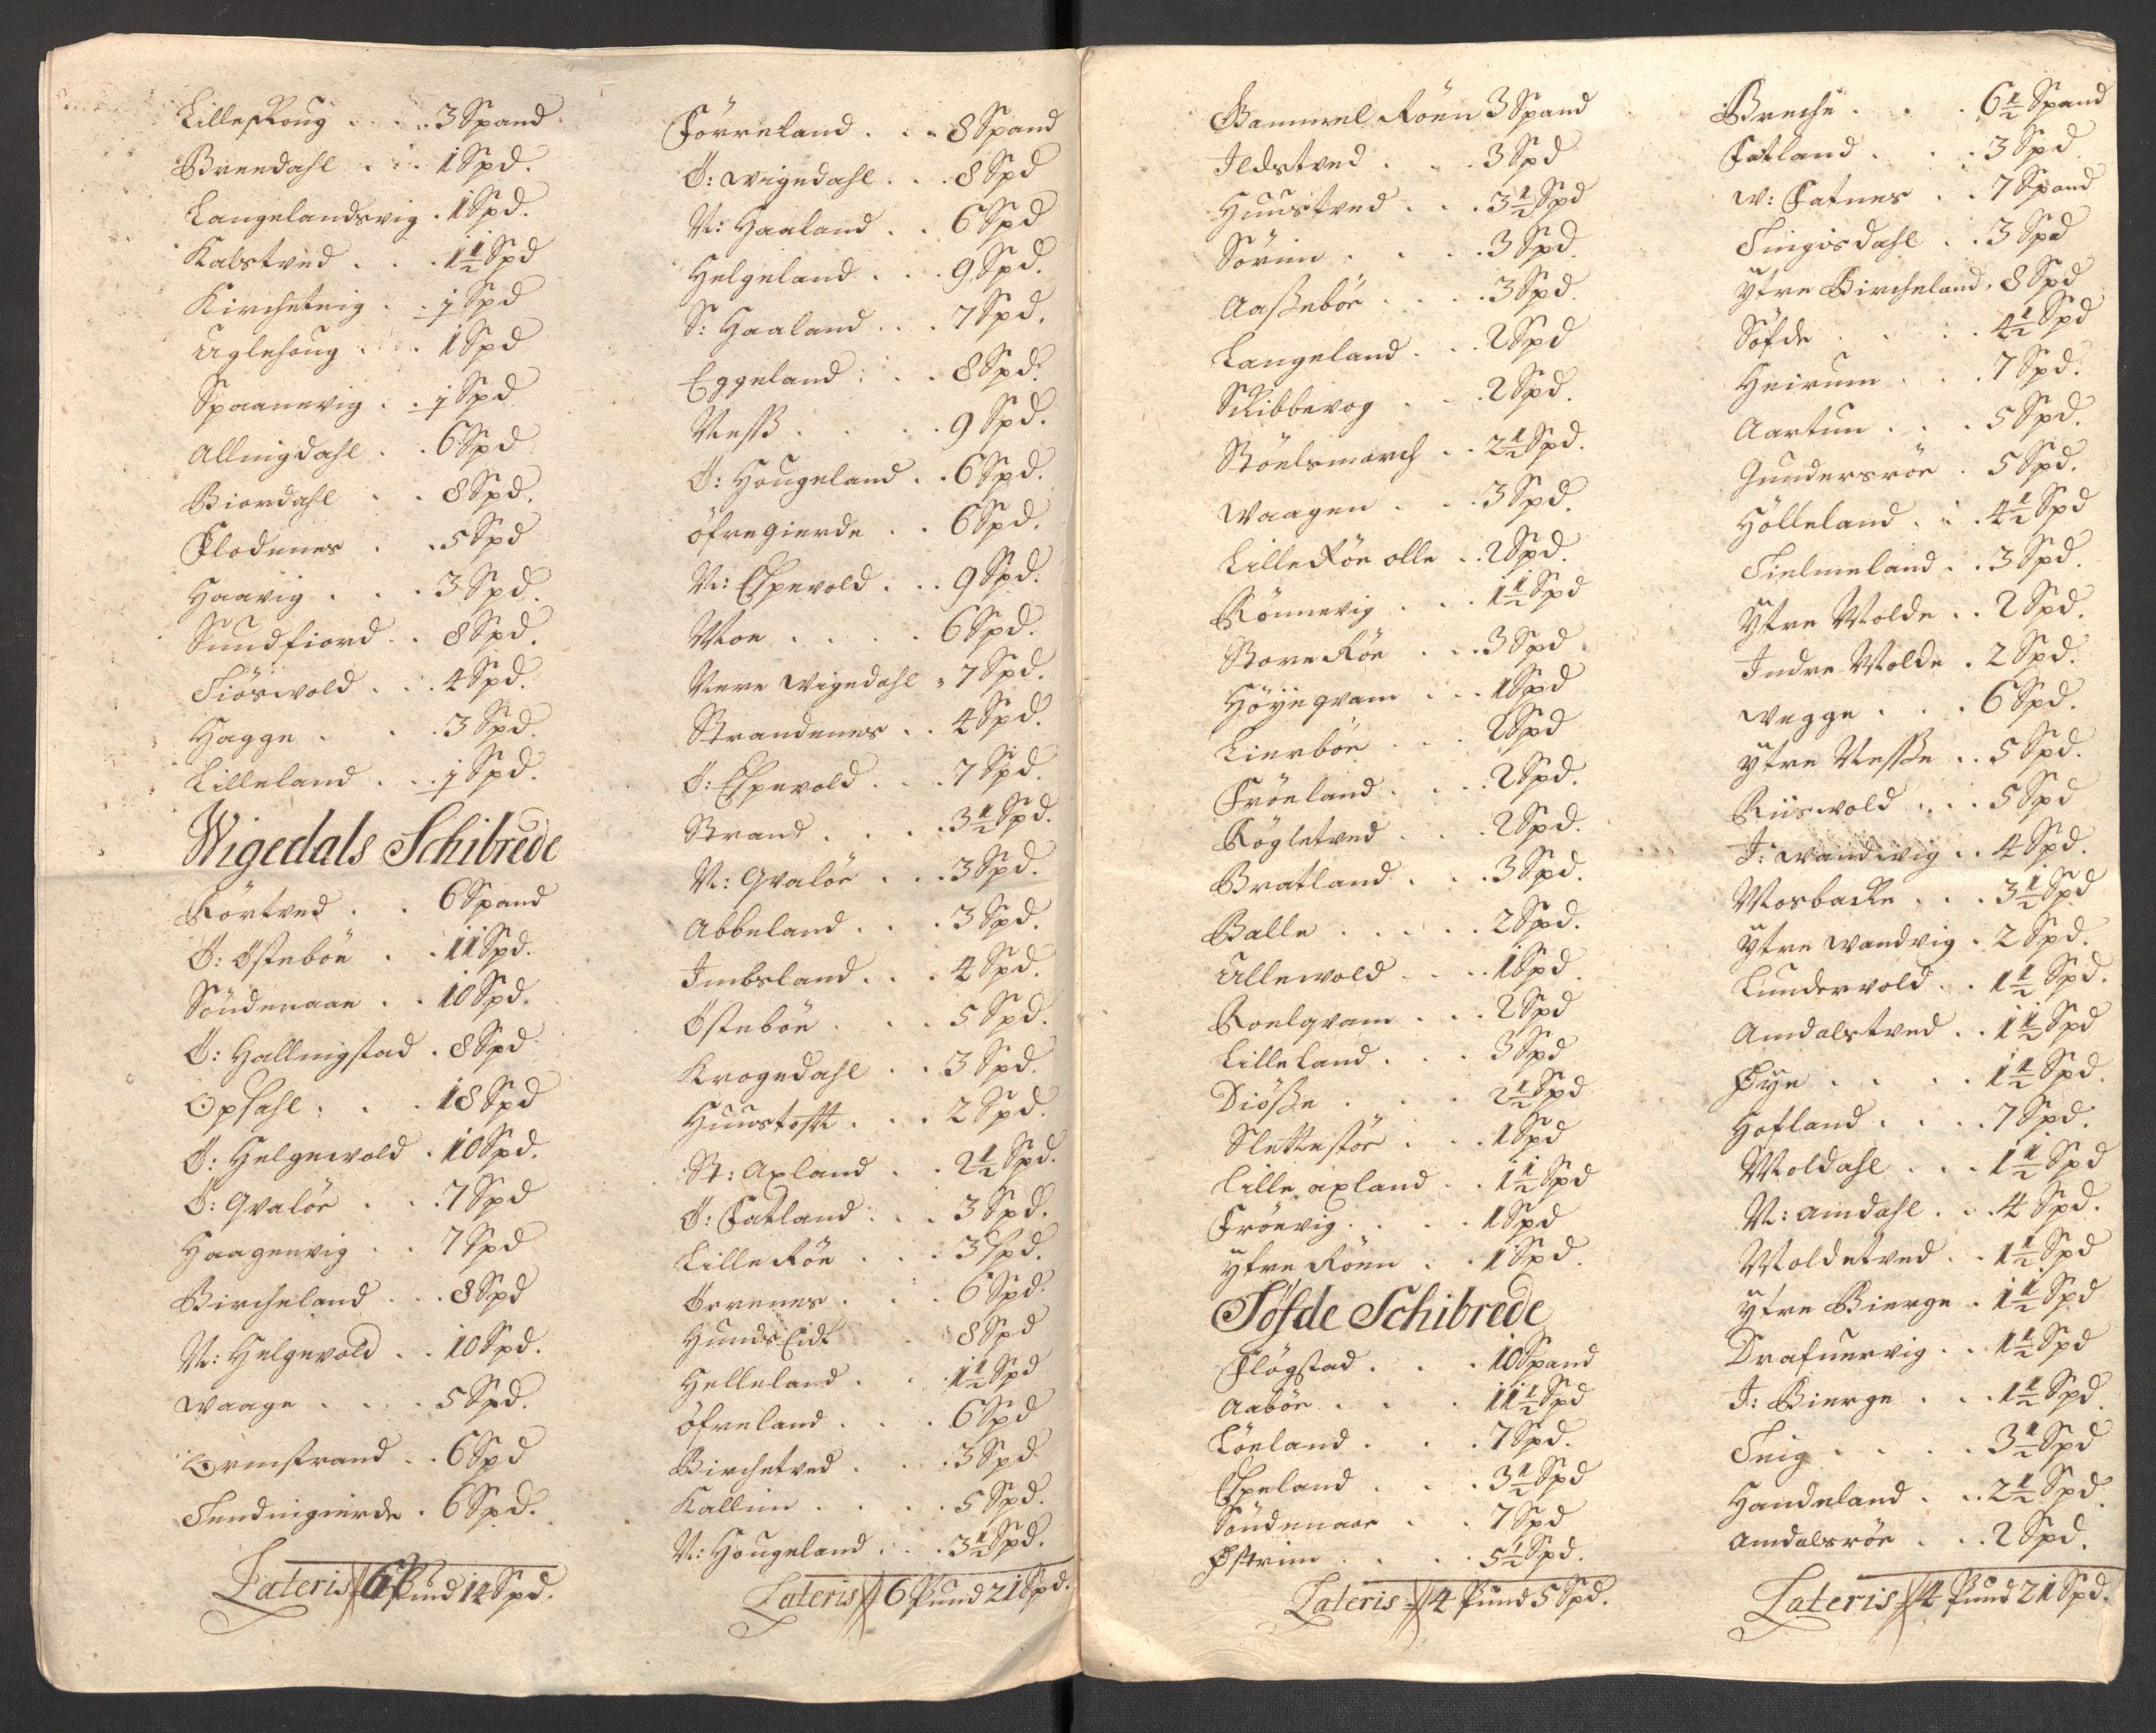 Lilleskoug . . . . 3 Spand
Breedahl . . . 1 Spd.
Langelandsvig . 1 Spd.
Kabstved . . . 1 1/2 Spd
Kircheteig . . 1 Spd
Uglehoug . . . 1 Spd
Spaanevig . . 1 Spd
Allingdahl . . 6 Spd
Biordahl . . 8 Spd.
Flodenes . . 5 Spd
Haavig . . . 3 Spd.
Sundfiord . . 8 Spd.
Tiösvold . . . 4 Spd.
Hagge . . . 3 Spd.
Lilleland . . . 1 Spd.
Wigedals Schibrede
Rörtved . . 6 Spand
Ö: Östeböe . . 11 Spd.
Söndenaae . . 10 Spd.
Ö: Hallingstad . 8 Spd
Opsahl . . . 18 Spd
Ö: Helgevold . 10 Spd.
Ö: Qvalöe . . . 7 Spd
Haagenvig . . 7 Spd
Bircheland . . . 8 Spd
N: Helgevold . . 10 Spd.
Waage . . . . 5 Spd.
Ormstrand . . 6 Spd
Tendingierde . 6 Spd.
Lateris 6 Pund 14 Spd.
Förreland . . . 8 Spand
Ö: Wigedahl . . . 8 Spd
N: Haaland . . 6 Spd
Helgeland . . . 9 Spd.
S: Haaland . . . 7 Spd.
Eggeland . . . 8 Spd.
Nesß . . . . 9 Spd.
Ö: Hougeland . . 6 Spd.
Öfregierde . . 6 Spd.
N: Espevold . . . 9 Spd.
Moe . . . . . 6 Spd.
Nere Wigedahl . 7 Spd.
Strandenes . . 4 Spd.
Ö: Espevold . . . 7 Spd.
Strand . . . . 3 1/2 Spd.
N: Qvalöe . . . 3 Spd.
Abbeland . . . 3 Spd.
Imbsland . . . 4 Spd.
Östeböe . . . 5 Spd.
Krogedahl . . 3 Spd.
Huustoft . . . 2 Spd.
St: Axland . . 2 1/2 Spd.
Ö: Fatland . . . 3 Spd.
Lille Röe . . . 3 Spd.
Örrenes . . . 6 Spd.
Hunds Eidt . 8 Spd
Helleland . . . 1 1/2 Spd
Öfreland . . . 6 Spd
Birchetved . . . 3 Spd
Kallim . . . . 5 Spd.
N: Hougeland . . . 3 1/2 Spd.
Lateris 6 Pund 21 Spd.
Gammel Röen 3 Spand
Ildstved . . . 3 Spd
Huustved . . . 3 1/2 Spd
Sörim . . . . 3 Spd.
Aaßeböe . . . 3 Spd.
Langeland . . . 2 Spd
Skibbevog . . . 2 Spd.
Stöelsmarch . . 2 1/2 Spd.
Waagen . . . 3 Spd.
Lille Röe olle . . 2 Spd.
Rönnevig . . . 1 1/2 Spd
Store Röe . . . 3 Spd
Höyeqvam . . . 1 Spd
Lierböe . . . 2 Spd
Fröeland . . . 2 Spd.
Rögletved . . . 2 Spd.
Bratland . . . 3 Spd.
Balle . . . . . 2 Spd.
Ullevold . . . 1 Spd
Roelqvam . . . 2 Spd
Lilleland . . . 3 Spd
Diöße . . . 2 1/2 Spd
Slettestöe . . . 1 Spd
Lille axland . . 1 1/2 Spd
Fröevig . . . . 1 Spd
Ytre Röen . . 1 Spd.
Söfde Schibrede
Flögstad . . . 10 Spand
Aaböe . . . 11 1/2 Spd
Löeland . . . 7 Spd.
Espeland . . . 3 1/2 Spd
Söndenaae . . 7 Spd
Østrim . . . . 5 1/2 Spd.
Lateris 4 Pund 5 Spd.
Breche . . . 6 1/2 Spand
Fatland . . . 3 Spd
W: Fatnes . . 7 Spand
Tingisdahl . . 3 Spd
Ytre Bircheland . 8 Spd
Söfde . . . . 4 1/2 Spd
Heirum . . . 7 Spd.
Aartun . . . 5 Spd.
Gundersröe . 5 Spd.
Hölleland . . . 4 1/2 Spd
Tielmeland . . 3 Spd.
Ytre Molde . . 2 Spd.
Indre Molde . 2 Spd.
Wegge . . . 6 Spd.
Ytre Nesße . . 5 Spd.
Riisvold . . . 5 Spd
I: Wandvig . . 4 Spd.
Mosbacke . . . 3 1/2 Spd
Ytre Wandvig . 2 Spd.
Lundervold . . 1 1/2 Spd.
Amdalstved . . 1 1/2 Spd
Øye . . . . 1 1/2 Spd.
Hofland . . . . 7 Spd.
Moldahl . . . 1 1/2 Spd
N: Amdahl . . . 4 Spd.
Moldetved . . 1 1/2 Spd
Ytre Bierge . 1 1/2 Spd
Drafnervig . . 1 1/2 Spd
I: Bierge . . . 1 1/2 Spd.
Teig . . . . 3 1/2 Spd
Handeland . . . 2 1/2 Spd.
Amdalsröe . . . 2 Spd.
Lateris 4 Pund 21 Spd.